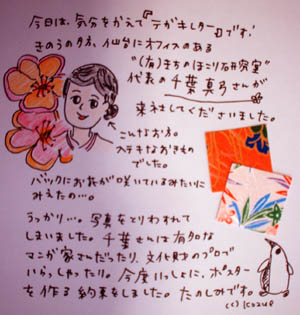 今日は、気分をかえて『テガキレター』です。
きのうの夕方、仙台にオフィスのある
"(有)まちのほこり研究室"
代表の千葉真弓さんが
来ネさしてくださいました。
こんなお方。
ステキなおきもの
でした。
バックにお花が咲いているみたいに
みえたの…。
うっかり…。写真をとりわすれて
しまいました。千葉さんは有名な
マンガ家さんだったり、文化財のプロで
いらっしゃったり。今度いっしょに、ポスター
を作る約束をしました。たのしみです。
(c) Kozue